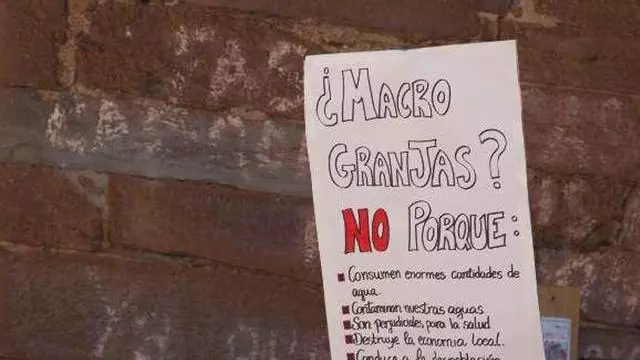 ¿MACRO
GRANJAS?
NO PORQUE:
Consumen enormes cantidades de
agua.
Contaminan nuestras aguas
Son perjudiciales para la salud
Destruye la economia local.
Conduce a la despoblación